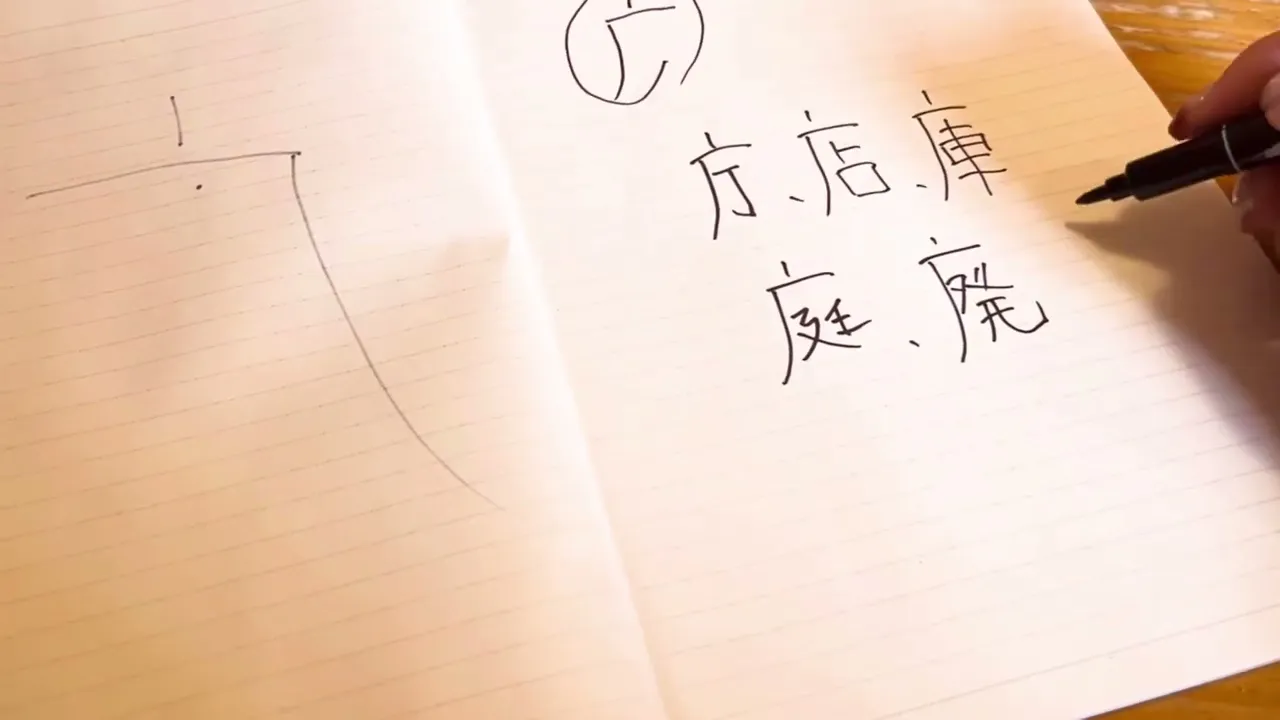 广
庁、店、庫
庭、廃